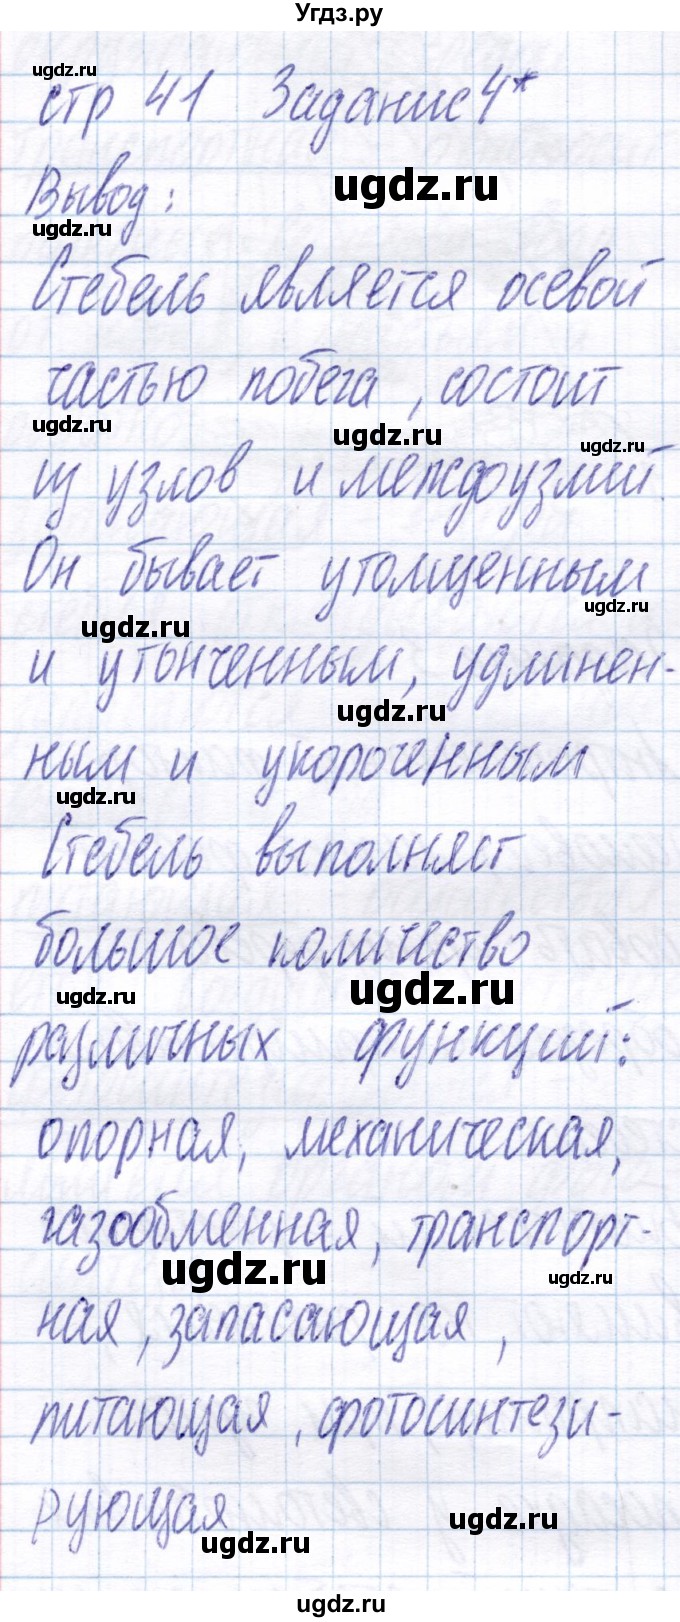 Угдз.ру
ugdz.ru
стр 41 Задание 4*
ugdz.ru
Вывод:
ugdz.ru
Стебель является осевой
частью побега, состоит
ugdz.ru
ugdz.ru
ugdz.ru
из узлов и междоузлий.
Он бывает утолщенным
ugdz.ru
ugdz.ru
и утонченным, удлинен-
ugdz.ru
ным и укороченным
ugdz.ru
Стебель выполняет
большое количество
ugdz.ru
ugdz.ru
различных функций:
опорная, механическая,
газообменная, транспорт-
ugdz.ru
ugdz.ru
ная, запасающая,
питающая, фотосинтези-
рующая
ugdz.ru
ugdz.ru
ugdz.ru